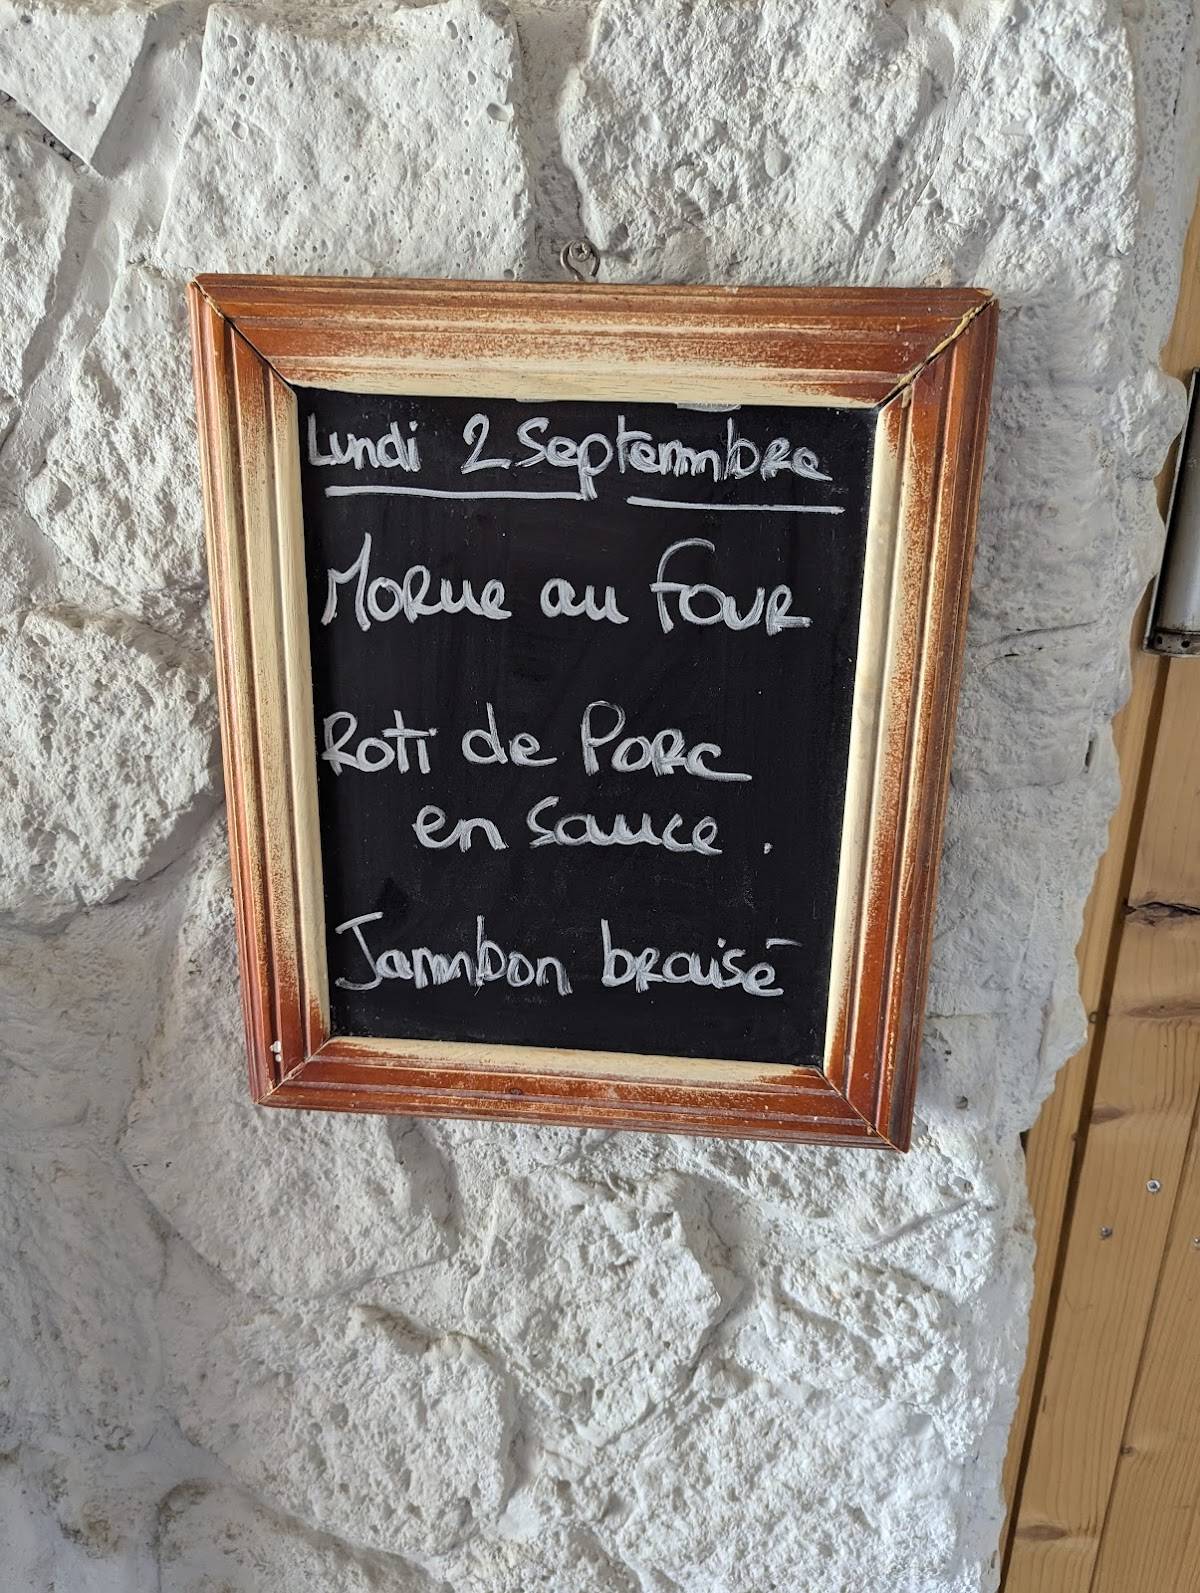 Lundi 2 Septembre
Morue au Four
Roti de Porc
en Sauce.
Jambon braisé